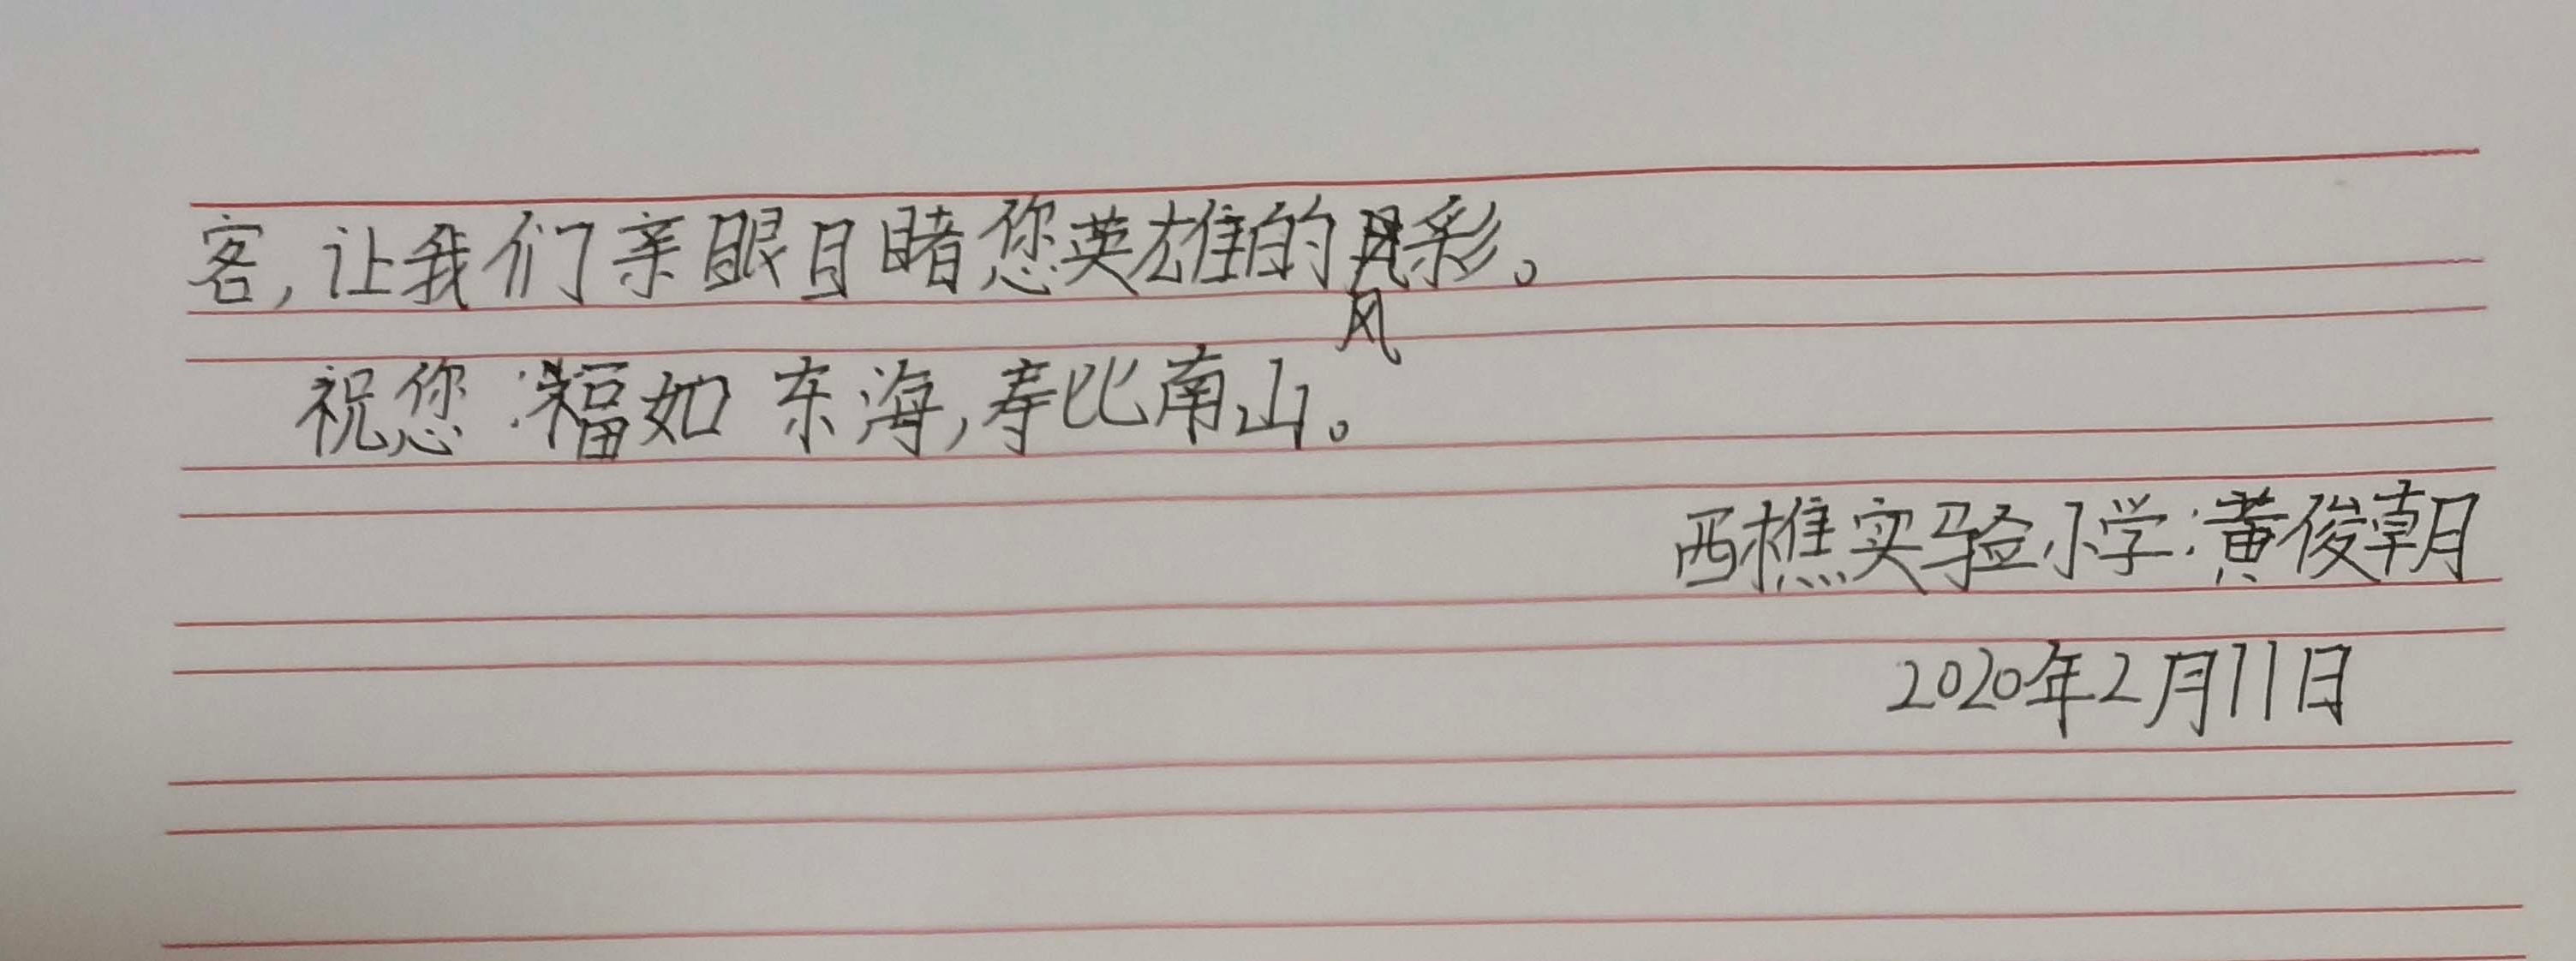 客,让我们亲眼目睹您英雄的风彩。
风
祝您:福如东海,寿比南山。
西樵实验小学:黄俊朝
2020年2月11日